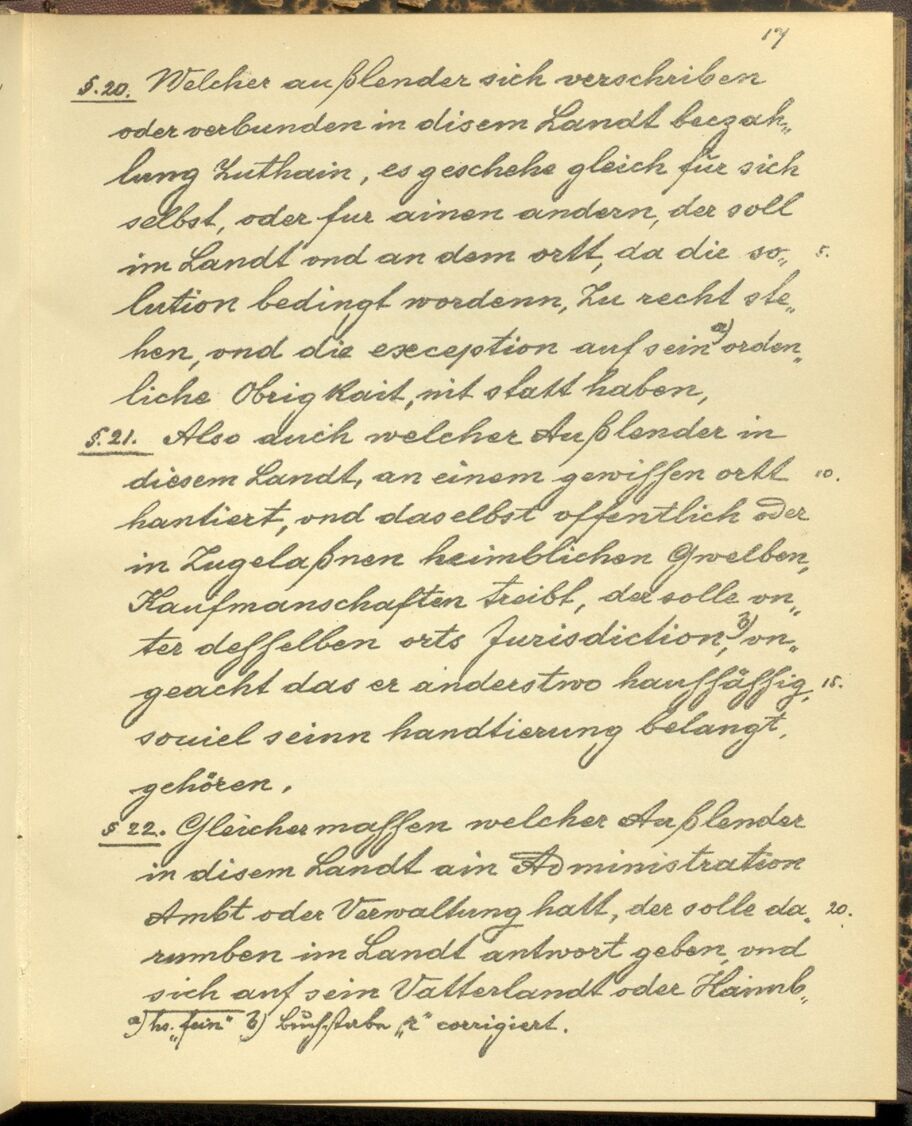 17
§.20. Welcher außlender sich verschriben
oder verbunden in disem Landt beczah„
lung Zuthain, es geschehe gleich für sich
selbst, oder fur ainen andern, der soll
im Landt vnd an dem ortt, da die so„ 5.
lution bedingt wordenn, Zu recht ste„
hen, vnd die exception auf sein a) orden„
liche Obrigkait, nit statt haben,
§.21. Also auch welcher Außlender in
diesem Landt, an einem gewissen ortt 10.
hantiert, vnd daselbst offentlich oder
in Zugelaßnen heimblichen Gwelben,
Kaufmanschaften treibt, der solle vn„
ter desselben orts Jurisdiction, b) vn„
geacht das er anderstwo haussässig, 15.
souiel seinn handtierung belangt,
gehören.
§ 22. Gleichermassen welcher Außlender
in disem Landt ain Administration
Ambt oder Verwaltung hatt, der solle da„ 20.
rumben im Landt antwort geben, vnd
sich auf sein Vatterlandt oder Haimb„
a) hs. „fein“ b) buchstabe „r“ corrigiert.